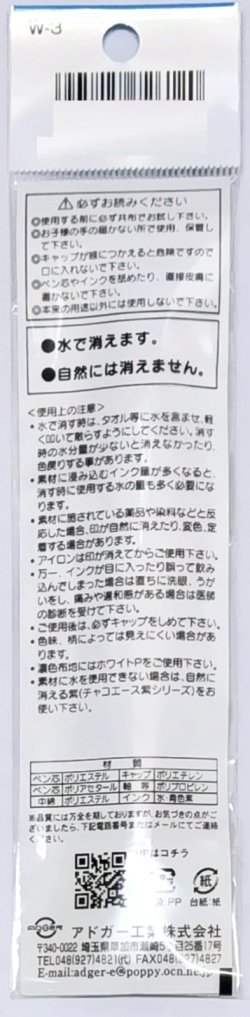 W-3
⚠必ずお読みください
◎使用する前に必ず共布でお試し下さい。
◎お子様の手の届かない所で使用、保管し
て下さい。
◎キャップが喉につかえると危険ですので
口に入れないで下さい。
◎ペン芯やインクを舐めたり、直接皮膚に
書かないで下さい。
◎本来の用途以外には使用しないで下さい。
●水で消えます。
●自然には消えません。
<使用上の注意>
・水で消す時は、タオル等に水を含ませ、軽
く叩いて散らすようにしてください。消す
時の水分量が少ないと消えなかったり、
色戻りする事があります。
・素材に浸み込むインク量が多くなると、
消す時に使用する水の量も多く必要にな
ります。
・素材に施されている薬品や染料などと反
応した場合、印が自然に消えたり、変色、定
着する場合があります。
・アイロンは印が消えてからご使用下さい。
・万一、インクが目に入ったり誤って飲み
込んでしまった場合は直ちに洗眼、うが
いをし、痛みや違和感がある場合は医師
の診断を受けて下さい。
・ご使用後は、必ずキャップをしめて下さい。
・色味、柄によっては見えにくい場合があ
ります。
・濃色布地にはホワイトPをご使用下さい。
・素材に水を使用できない場合は、自然に
消える紫(チャコエース紫シリーズ)をお
使い下さい。
材 質
ペン芯 ポリエステル キャップ ポリエチレン
ペン芯 ポリアセタール 軸 等 ポリプロピレン
中綿 ポリエステル インク 水・青色素
当品質には万全を期しておりますが、お気づきの点がご
ざいましたら、下記電話番号またはメールにてご連絡
ください。
HPはコチラ
袋:PP
紙
台紙:紙
ADGER
アドガー工業株式会社
〒340-0022 埼玉県草加市瀬崎5丁目25番17号
TEL048(927)4821㈹ FAX048(927)4827
E-mail:adger-e@poppy.ocn.ne.jp